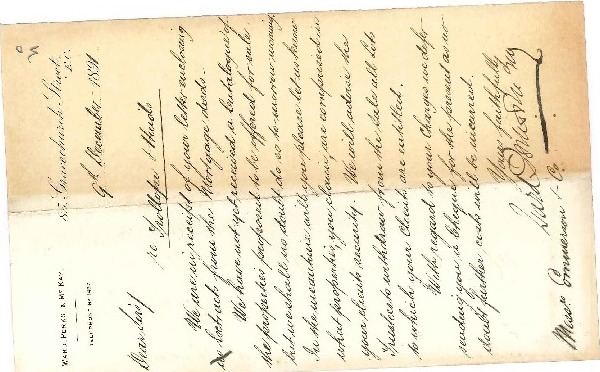 WARD, PERKS & McKAY.
TELEPHONE No
85, Gracechurch Street,
E.C.
9th December 1891
Dear Sirs,
re Trollope & Hards
We are in receipt of your letter enclosing
extract from the Mortgage deeds.
We have not yet received a Catalogue of
the properties proposed to be offered for sale
but we shall no doubt do so to-morrow morning.
In the meantime will you please let us know
what properties you claim are comprised in
your clients security. We will advise the
Trustees to withdraw from the Sale all lots
to which your Clients are entitled.
With regard to your Charges we defer
sending you a Cheque for the present as no
doubt further costs will be incurred.
Yours faithfully
Ward Perks & McKay
Messrs Emmerson & Co.